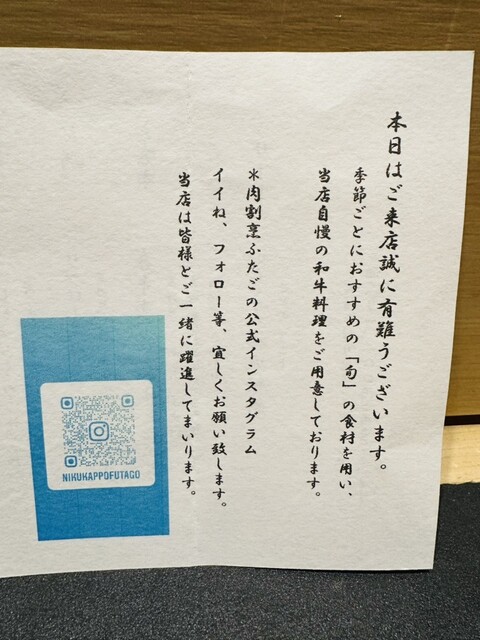 本日はご来店誠に有難うございます。
季節ごとにおすすめの「旬」の食材を用い、
当店自慢の和牛料理をご用意しております。
＊肉割烹ふたごの公式インスタグラム
イイね、フォロー等、宜しくお願い致します。
当店は皆様とご一緒に躍進してまいります。
NIKUKAPPOFUTAGO